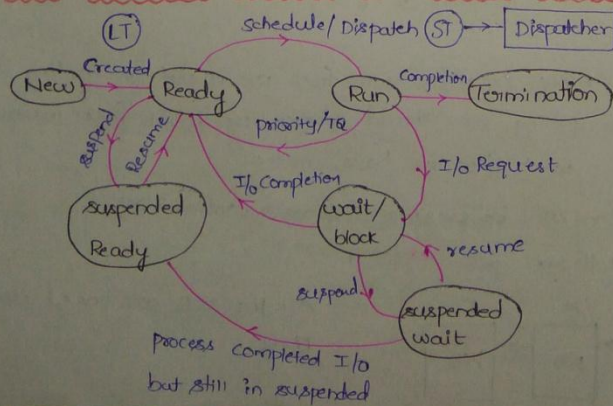 LT
schedule/ Dispatch
ST
Dispatcher
New
Created
Ready
Run
Completion
Termination
priority/TQ
suspend
Resume
I/o Completion
I/o Request
suspended
Ready
wait/
block
resume
suspend
suspended
wait
process completed I/o
but still in suspended